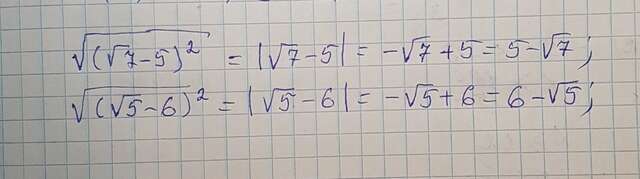 √(√7-5)² = |√7-5| = -√7+5 = 5-√7;
√(√5-6)² = |√5-6| = -√5+6 = 6-√5;